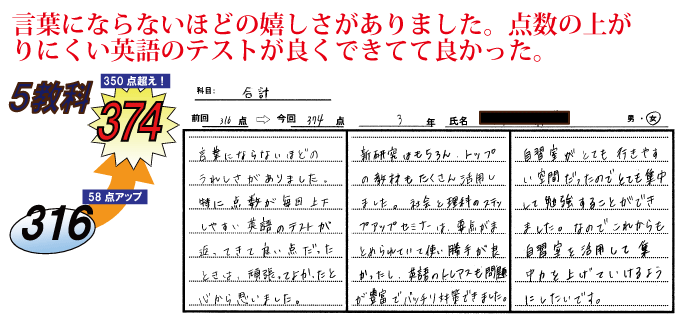 言葉にならないほどの嬉しさがありました。点数の上が
りにくい英語のテストが良くできてて良かった。
5教科
350点超え！
374
58点アップ
316
科目: 合計
前回 316 点 ⇨ 今回 374 点 3 年 氏名 男・女
言葉にならないほどの
うれしさがありました。
特に点数が毎回上下
しやすい英語のテストが
返ってきて良い点だった
ときは、頑張ってよかったと
心から思いました。
新研究はもちろん、トップ
の教材もたくさん活用し
ました。社会と理科のステッ
プアップセミナーは、要点がま
とめられていて使い勝手が良
かったし、英語のトレアスも問題
が豊富でバッチリ対策できました。
自習室がとても行きやす
い空間だったのでとても集中
して勉強することができ
ました。なのでこれからも
自習室を活用して集
中力を上げていけるよう
にしたいです。